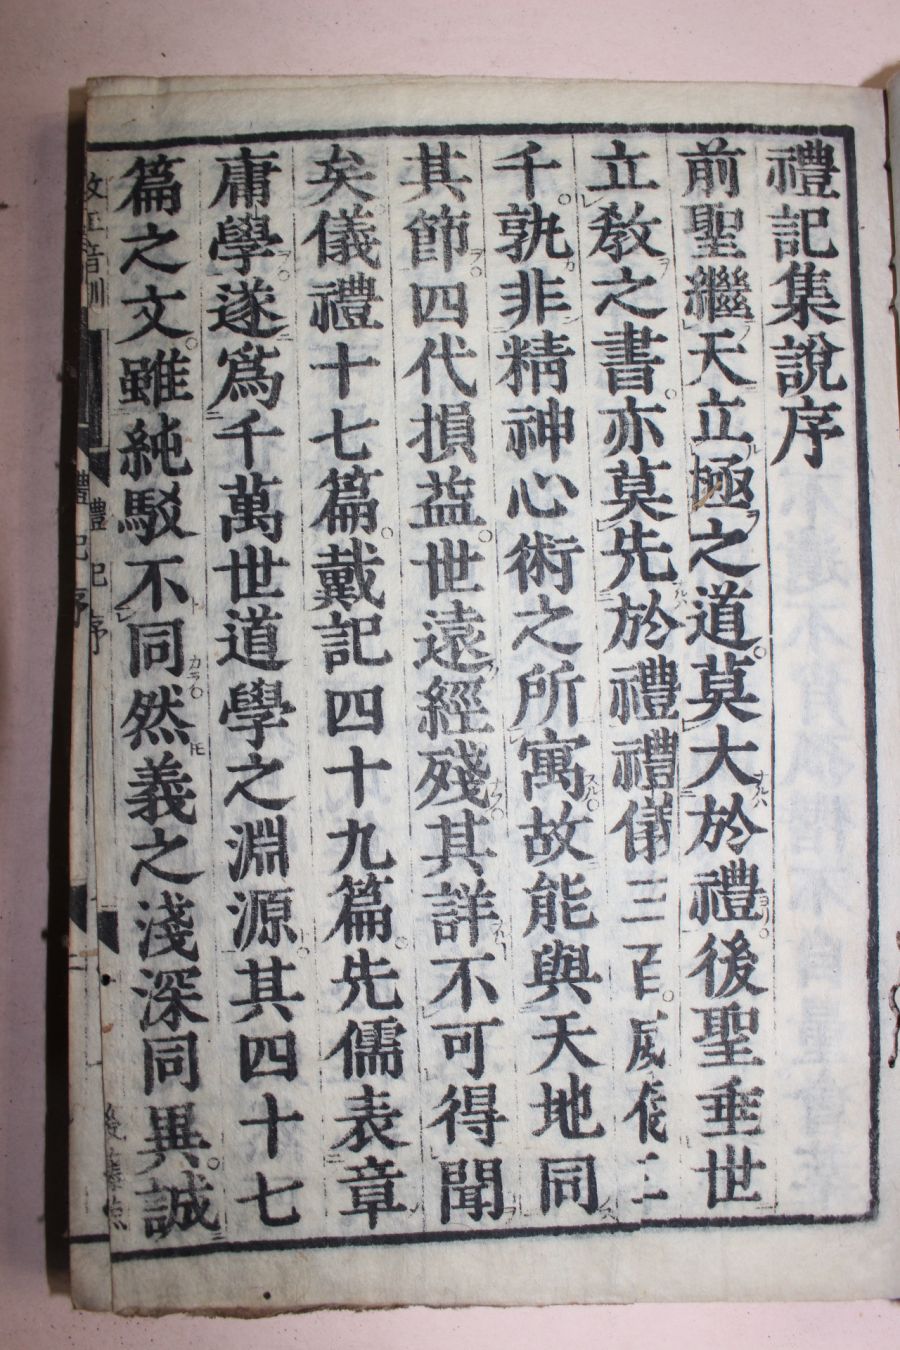 禮記集說序
前聖繼天立極之道莫大於禮後聖垂世
立敎之書亦莫先於禮禮儀三百威儀三
千孰非精神心術之所寓故能與天地同
其節四代損益世遠經殘其詳不可得聞
矣儀禮十七篇戴記四十九篇先儒表章
庸學遂爲千萬世道學之淵源其四十七
篇之文雖純駁不同然義之淺深同異誠
禮記序